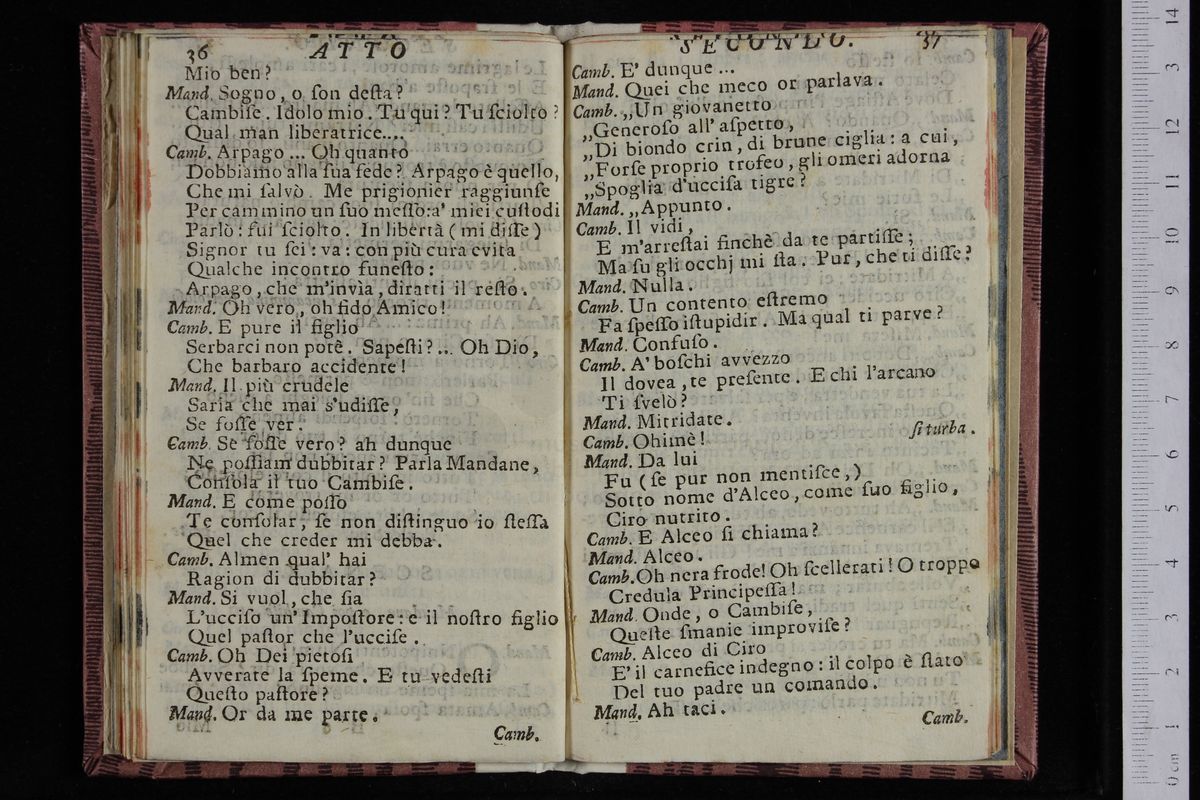 36
ATTO
Mio ben?
Mand. Sogno, o ſon deſta?
Cambiſe. Idolo mio. Tu qui? Tu ſciolto?
Qual man liberatrice....
Camb. Arpago ... Oh quanto
Dobbiamo alla ſua fede? Arpago è quello,
Che mi ſalvò. Me prigionier raggiunſe
Per cammino un ſuo meſſo: a' miei cuſtodi
Parlò: fui ſciolto. In libertà (mi diſſe)
Signor tu ſei: va: con più cura evita
Qualche incontro funeſto:
Arpago, che m'invìa, diratti il reſto.
Mand. Oh vero, oh fido Amico!
Camb. E pure il figlio
Serbarci non potè. Sapeſti?... Oh Dio,
Che barbaro accidente!
Mand. Il più crudele
Saria che mai s'udiſſe,
Se foſſe ver.
Camb. Se foſſe vero? ah dunque
Ne poſſiam dubbitar? Parla Mandane,
Conſola il tuo Cambiſe.
Mand. E come poſſo
Te conſolar, ſe non diſtinguo io ſteſſa
Quel che creder mi debba.
Camb. Almen qual' hai
Ragion di dubbitar?
Mand. Si vuol, che ſia
L'ucciſo un' Impoſtore: e il noſtro figlio
Quel paſtor che l'ucciſe.
Camb. Oh Dei pietoſi
Avverate la ſpeme. E tu vedeſti
Queſto paſtore?
Mand. Or da me parte.
Camb.
SECONDO.
37
Camb. E' dunque ...
Mand. Quei che meco or parlava.
Camb. „Un giovanetto
„Generoſo all' aſpetto,
„Di biondo crin, di brune ciglia: a cui,
„Forſe proprio trofeo, gli omeri adorna
„Spoglia d'ucciſa tigre?
Mand. „Appunto.
Camb. Il vidi,
E m'arreſtai finchè da te partiſſe;
Ma ſu gli occhj mi ſta. Pur, che ti diſſe?
Mand. Nulla.
Camb. Un contento eſtremo
Fa ſpeſſo iſtupidir. Ma qual ti parve?
Mand. Confuſo.
Camb. A' boſchi avvezzo
Il dovea, te preſente. E chi l'arcano
Ti ſvelò?
Mand. Mitridate.
Camb. Ohimè!
ſi turba.
Mand. Da lui
Fu (ſe pur non mentiſce,)
Sotto nome d'Alceo, come ſuo figlio,
Ciro nutrito.
Camb. E Alceo ſi chiama?
Mand. Alceo.
Camb. Oh nera frode! Oh ſcellerati! O troppo
Credula Principeſſa!
Mand. Onde, o Cambiſe,
Queſte ſmanie improviſe?
Camb. Alceo di Ciro
E' il carnefice indegno: il colpo è ſtato
Del tuo padre un comando.
Mand. Ah taci.
Camb.